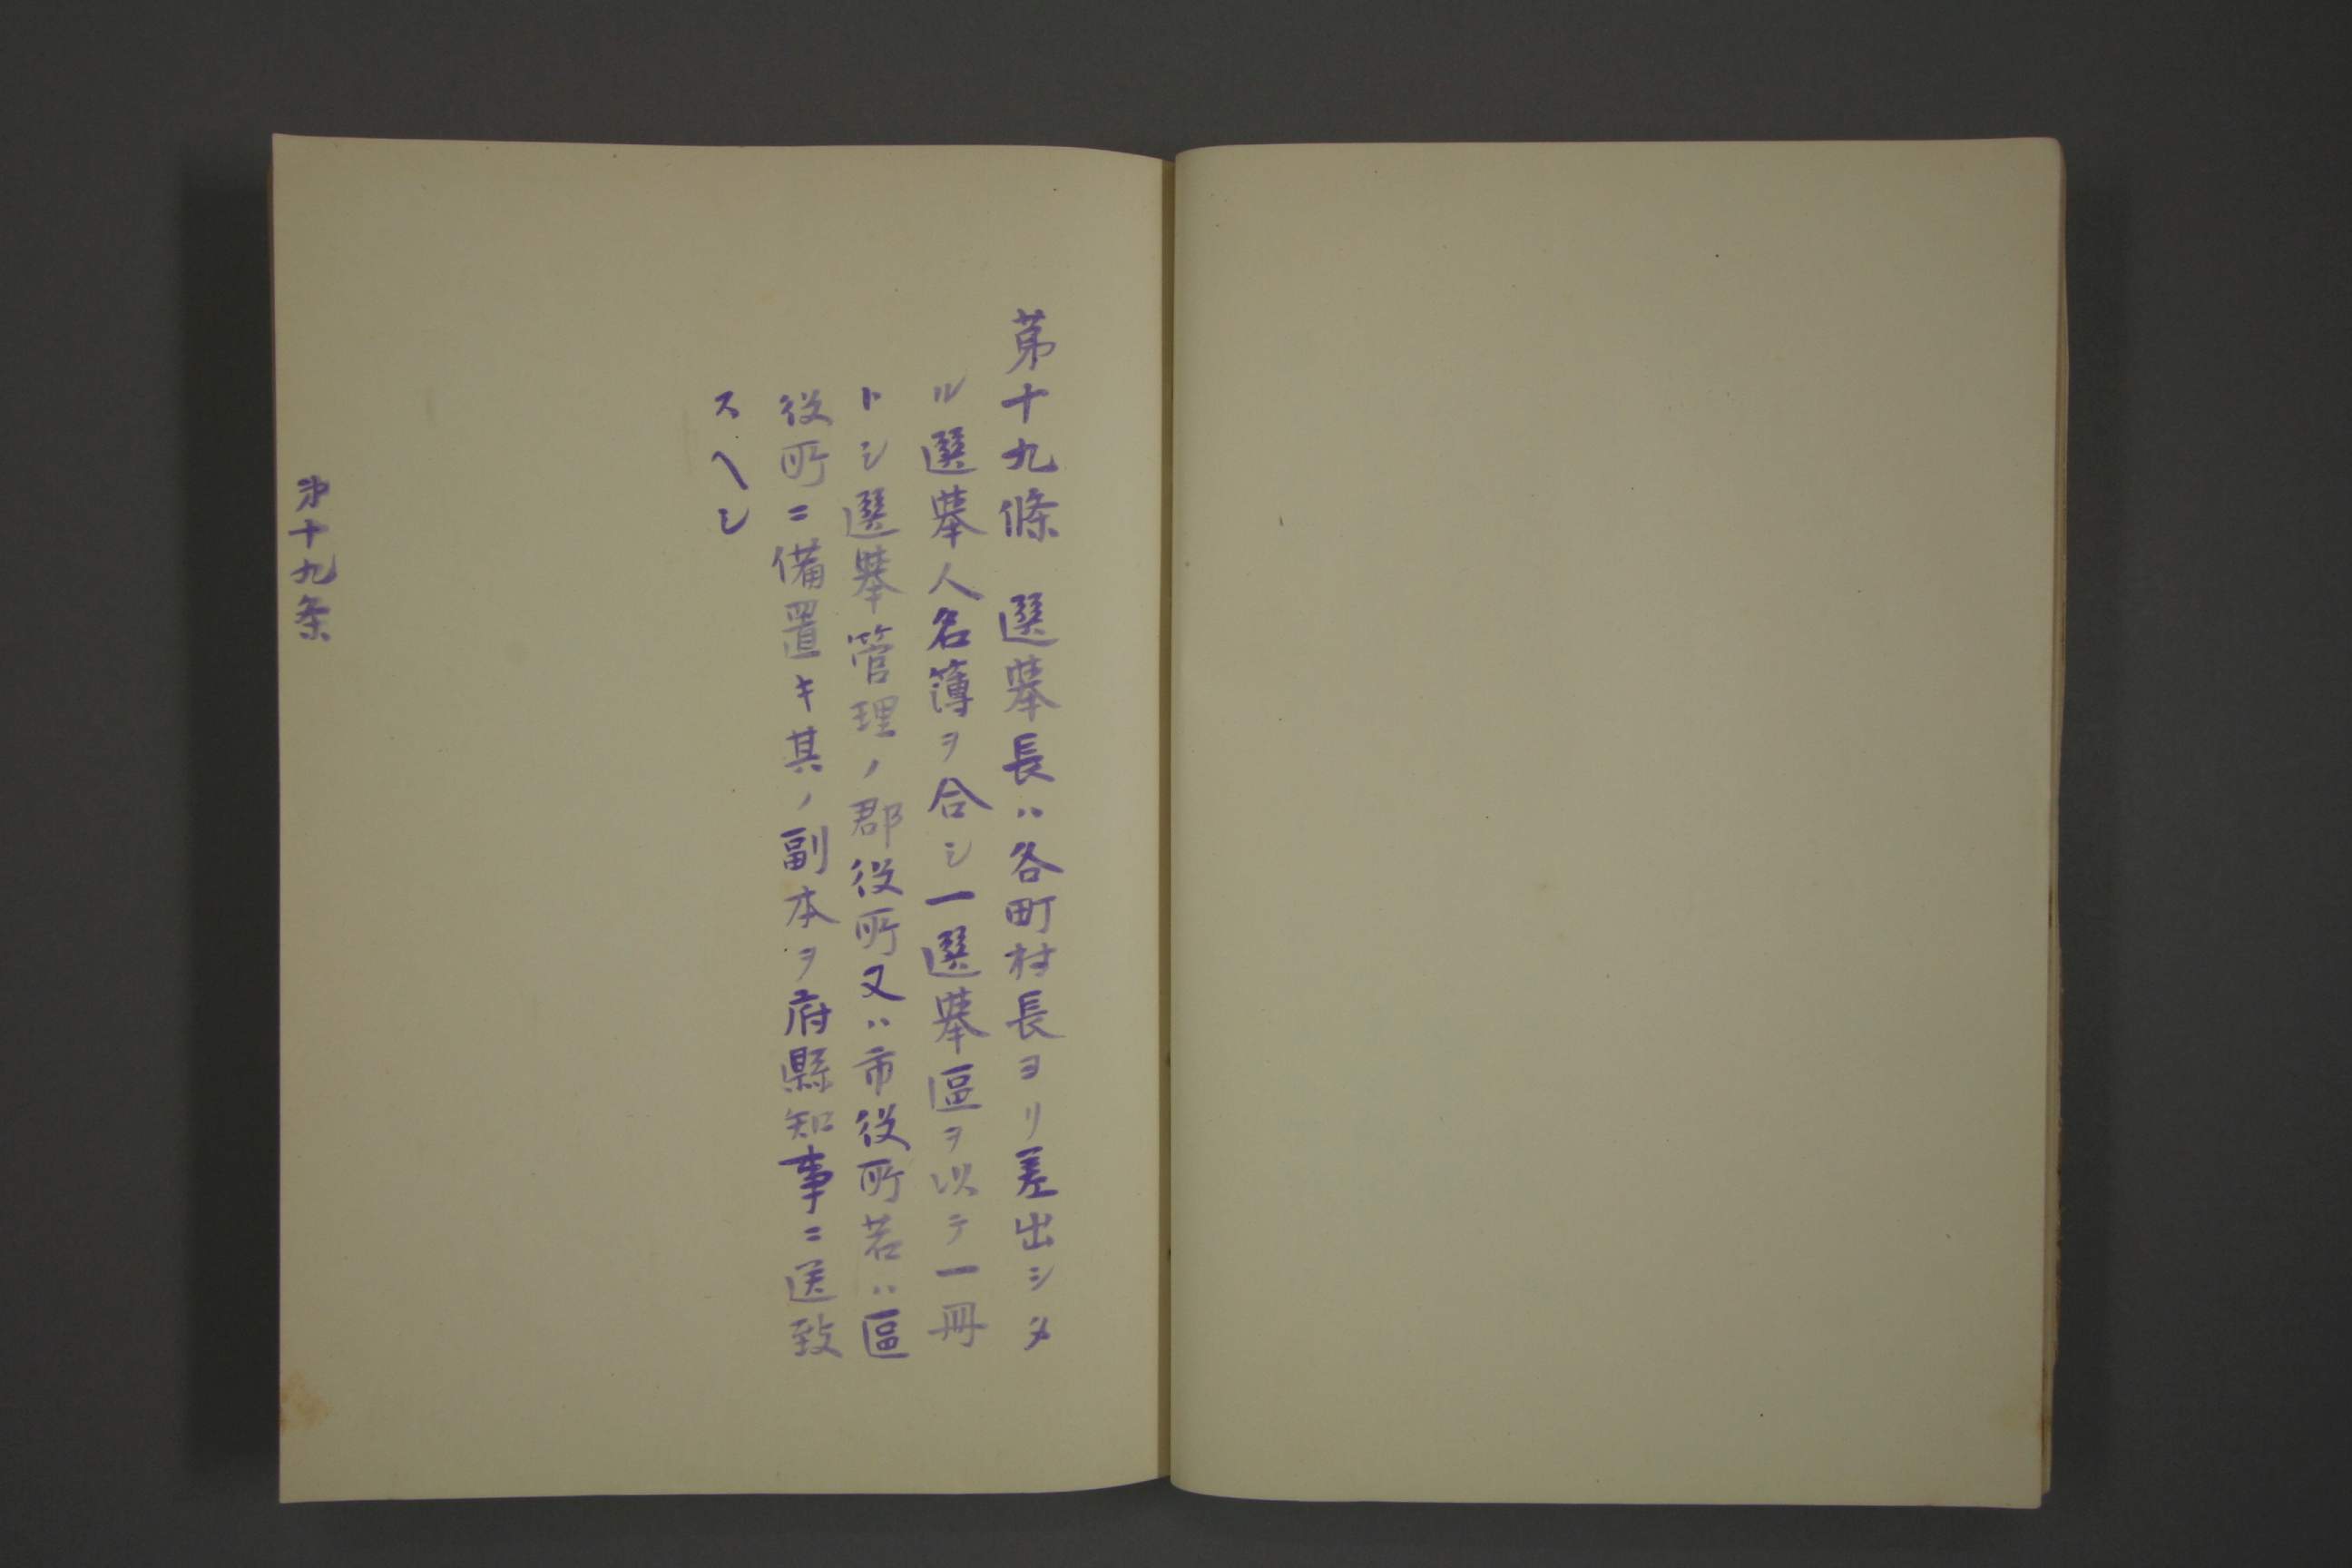 第十九條 選擧長ハ各町村長ヨリ差出シタ
ル選擧人名簿ヲ合シ一選擧區ヲ以テ一冊
トシ選擧管理ノ郡役所又ハ市役所若ハ區
役所ニ備置キ其ノ副本ヲ府縣知事ニ送致
スヘシ
第十九条